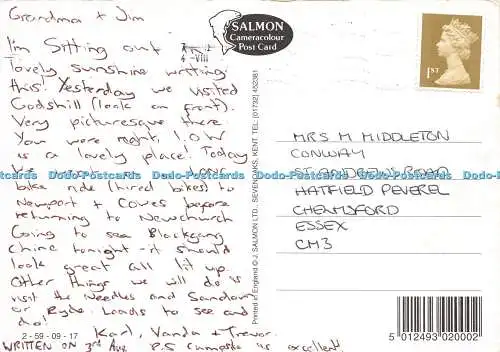 Grandma + Jim
I'm Sitting out
lovely sunshine writing
this! Yesterday we visited
Godshill (look on front).
Very picturesque there.
You were right, I.O.W
is a lovely place! Today
bike ride (hired bikes) to
Newport + Cowes before
returning to Newchurch
Going to see Blackgang
Chine tonight - it should
look great all lit up.
Other things we will do is
visit the Needles and Sandown
or Ryde. Loads to see and
do!
Karl, Vanda + Trevor.
2-59-09-17
WRITTEN ON 3rd Aug P.S Campsite is excellent!
SALMON
Cameracolour
Post Card
Printed in England © J. SALMON LTD., SEVENOAKS, KENT TEL: (01732) 452381
1ST
MRS M MIDDLETON
CONWAY
ROAD
HATFIELD PEVEREL
CHELMSFORD
ESSEX
CM3
Dodo-Postcards Dodo-Postcards Dodo-Postcards Dodo-Postcards
5 012493 020002